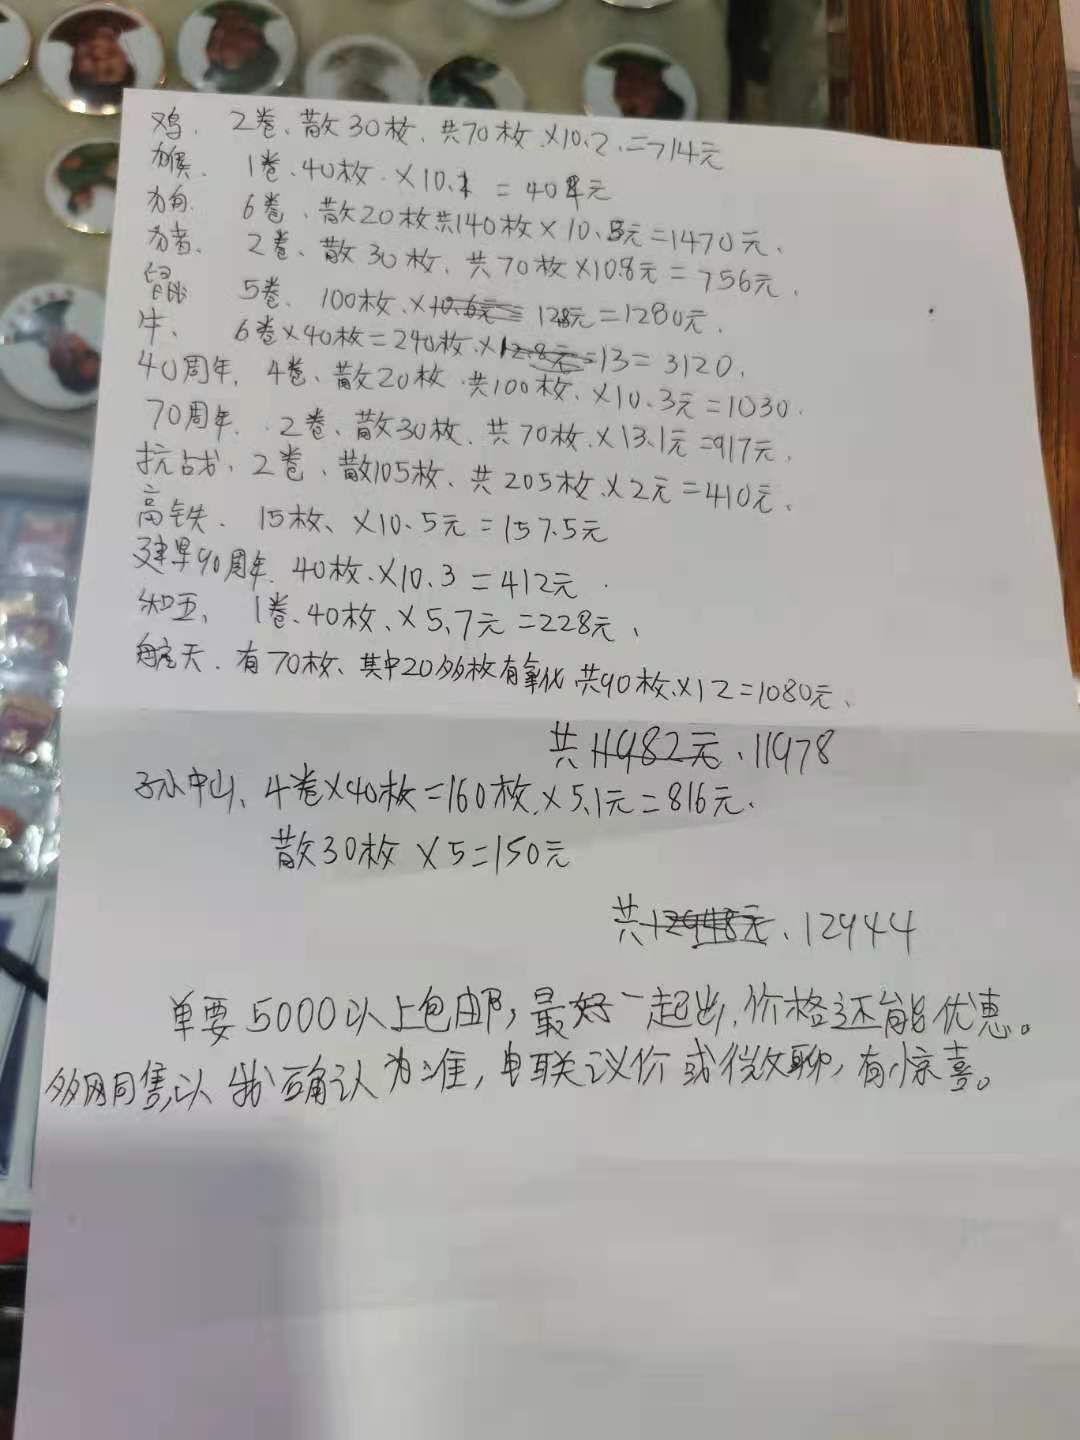 鸡、2卷、散30枚、共70枚、×10.2、=714元
猴、1卷、40枚、×10.1 = 404元
狗、6卷、散20枚共140枚×10.5元=1470元、
猪、2卷、散30枚、共70枚×10.8元=756元、
鼠 5卷、100枚、×10.6元= 12.8元=1280元、
牛、6卷×40枚=240枚、×12.8元=13=3120、
40周年、4卷、散20枚、共100枚、×10.3元=1030、
70周年、2卷、散30枚、共70枚、×13.1元=917元、
抗战、2卷、散105枚、共205枚、×2元=410元、
高铁、15枚、×10.5元=157.5元
建军90周年、40枚、×10.3=412元
和五、1卷、40枚、×5.7元=228元、
航天、有70枚、其中20多枚有氧化 共90枚、×12=1080元、
共11982元、11978
孙中山、4卷×40枚=160枚、×5.1元=816元、
散30枚×5=150元
共12948元、12944
单要5000以上包邮,最好一起出,价格还能优惠。
多网同售,以我确认为准,电联议价或微聊,有惊喜。